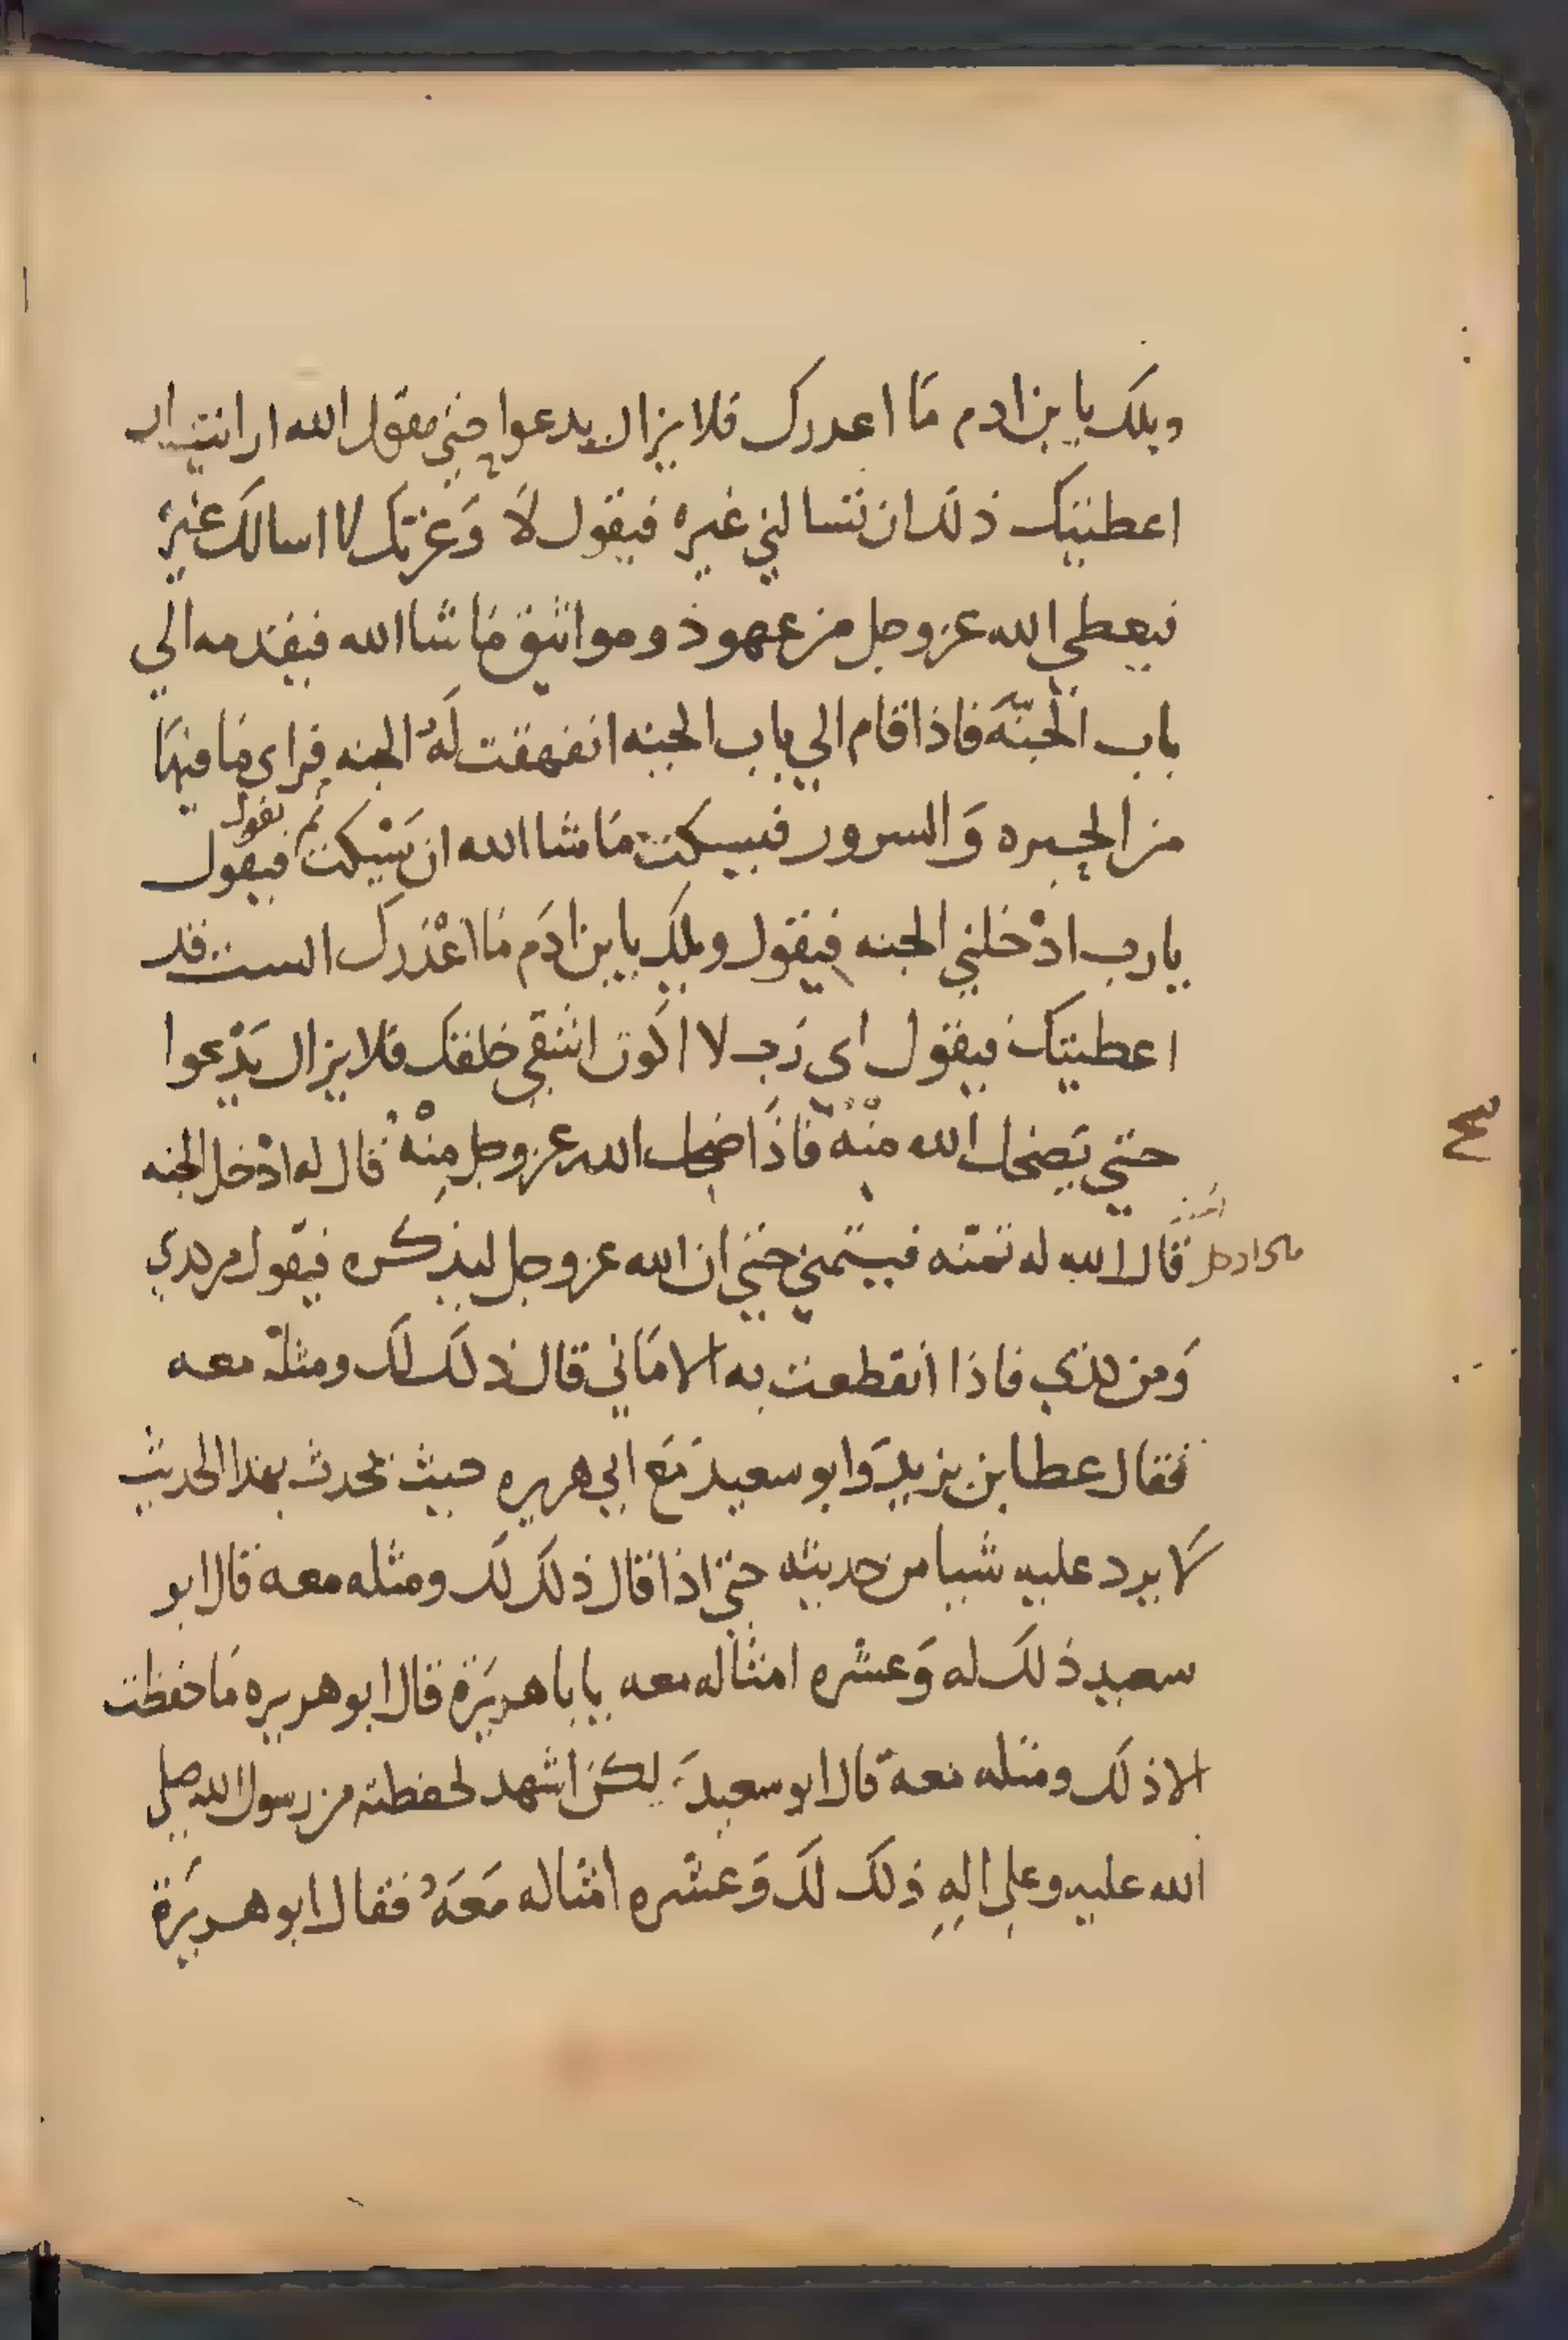 ويلك يا بن ادم ما اعدرك فلا يزال يدعوا حتي يقول الله ان انت
اعطيتك ذلك ان تسالني غيره فيقول لا وعزتك لا اسالك غيره
فيعطي الله عز وجل من عهوذ ومواثيق ما شا الله فيقدمه الي
باب الجنة فاذا قام الي باب الجنه انفهقت له الجنه فراي ما فيها
من الحبره والسرور فيسكت ما شا الله ان يسكت ثم يقول فيقول
يا رب ادخلني الجنه فيقول ويلك يا بن ادم ما اعذرك الست قد
اعطيتك فيقول اي رب لا اكون اشقي خلقك فلا يزال يدعوا
حتي يضحك الله منه فاذا ضحك الله عز وجل منه قال له ادخل الجنه
قال الله له تمنه فيتمني حتي ان الله عز وجل ليذكره فيقول من هدي
ومن هذي فاذا انقطعت به الاماني قال ذلك لك ومثله معه
فقال عطا بن يزيد وابو سعيد مع ابي هريره حيث يحدث بهذا الحديث
لا يرد عليه شيا من حديثه حتي اذا قال ذلك لك ومثله معه قال ابو
سعيد ذلك له وعشره امثاله معه يا با هريرة قال ابو هريره ما حفظت
الا ذلك ومثله معه قال ابو سعيد لكن اشهد لحفظته من رسول الله صلي
الله عليه وعلي اله ذلك لك وعشره امثاله معه فقال ابو هريرة